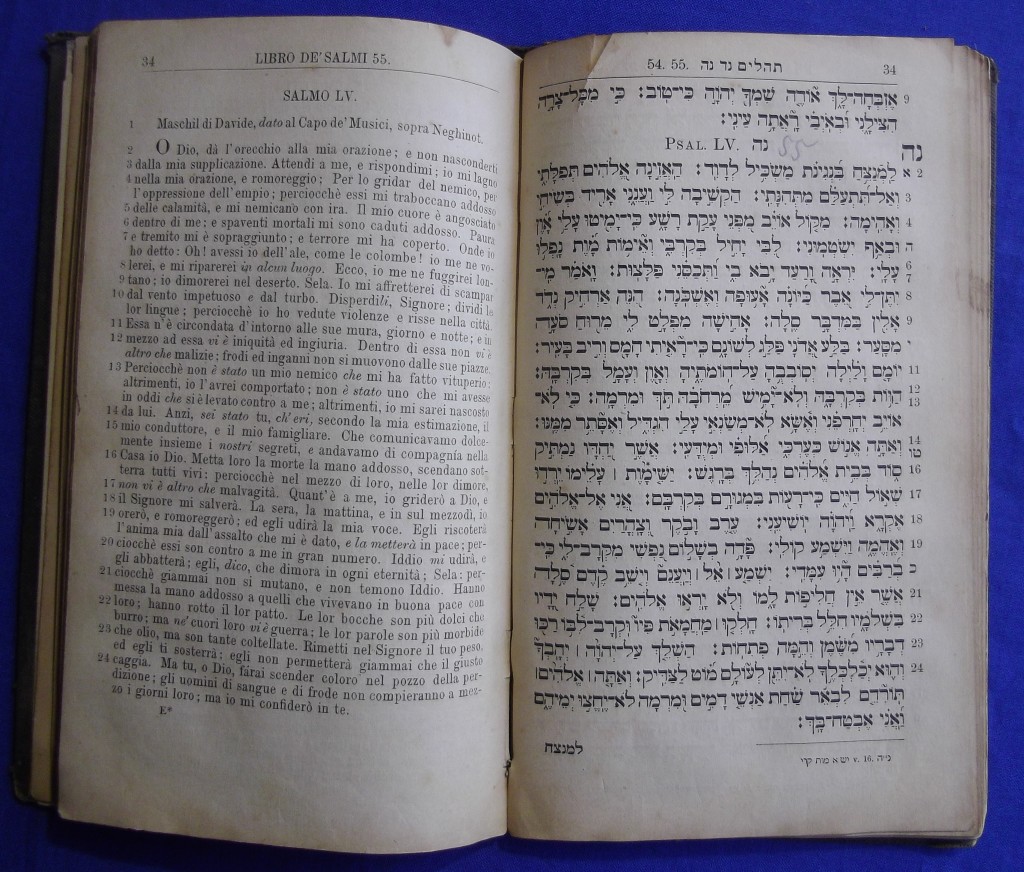 34
LIBRO DE' SALMI 55.
SALMO LV.
1 Maschil di Davide, dato al Capo de' Musici, sopra Neghinot.
2 O Dio, dà l'orecchio alla mia orazione; e non nasconderti
3 dalla mia supplicazione. Attendi a me, e rispondimi; io mi lagno
4 nella mia orazione, e romoreggio; Per lo gridar del nemico, per
l'oppressione dell'empio; perciocchè essi mi traboccano addosso
5 delle calamità, e mi nemicano con ira. Il mio cuore è angosciato
6 dentro di me; e spaventi mortali mi sono caduti addosso. Paura
7 e tremito mi è sopraggiunto; e terrore mi ha coperto. Onde io
ho detto: Oh! avessi io dell'ale, come le colombe! io me ne vo-
8 lerei, e mi riparerei in alcun luogo. Ecco, io me ne fuggirei lon-
9 tano; io dimorerei nel deserto. Sela. Io mi affretterei di scampar
10 dal vento impetuoso e dal turbo. Disperdili, Signore; dividi le
lor lingue; perciocchè io ho vedute violenze e risse nella città.
11 Essa n'è circondata d'intorno alle sue mura, giorno e notte; e in
12 mezzo ad essa vi è iniquità ed ingiuria. Dentro di essa non vi è
altro che malizie; frodi ed inganni non si muovono dalle sue piazze.
13 Perciocchè non è stato un mio nemico che mi ha fatto vituperio;
altrimenti, io l'avrei comportato; non è stato uno che mi avesse
in odio che si è levato contro a me; altrimenti, io mi sarei nascosto
14 da lui. Anzi, sei stato tu, ch'eri, secondo la mia estimazione, il
15 mio conduttore, e il mio famigliare. Che comunicavamo dolce-
mente insieme i nostri segreti, e andavamo di compagnia nella
16 Casa io Dio. Metta loro la morte la mano addosso, scendano sot-
terra tutti vivi; perciocchè nel mezzo di loro, nelle lor dimore,
17 non vi è altro che malvagità. Quant'è a me, io griderò a Dio, e
18 il Signore mi salverà. La sera, la mattina, e in sul mezzodì, io
19 orerò, e romoreggerò; ed egli udirà la mia voce. Egli riscoterà
l'anima mia dall'assalto che mi è dato, e la metterà in pace; per-
20 ciocchè essi son contro a me in gran numero. Iddio mi udirà, e
gli abbatterà; egli, dico, che dimora in ogni eternità; Sela: per-
21 ciocchè giammai non si mutano, e non temono Iddio. Hanno
messa la mano addosso a quelli che vivevano in buona pace con
22 loro; hanno rotto il lor patto. Le lor bocche son più dolci che
burro; ma ne' cuori loro vi è guerra; le lor parole son più morbide
23 che olio, ma son tante coltellate. Rimetti nel Signore il tuo peso,
ed egli ti sosterrà; egli non permetterà giammai che il giusto
24 caggia. Ma tu, o Dio, farai scender coloro nel pozzo della per-
dizione; gli uomini di sangue e di frode non compieranno a mez-
zo i giorni loro; ma io mi confiderò in te.
E*
54. 55. תהלים נד נה
34
9 אֶזְבְּחָה־לָּךְ אוֹדֶה שִּׁמְךָ יְהוָֹה כִּי־טוֹב: כִּי מִכָּל־צָרָה
הִצִּילָנִי וּבְאֹיְבַי רָאֲתָה עֵינִי:
PSAL. LV. נה 55
נה
א 2 לַמְנַצֵּחַ בִּנְגִינֹת מַשְׂכִּיל לְדָוִד: הַאֲזִינָה אֱלֹהִים תְּפִלָּתִי
3 וְאַל־תִּתְעַלַּם מִתְּחִנָּתִי: הַקְשִׁיבָה לִּי וַעֲנֵנִי אָרִיד בְּשִׂיחִי
4 וְאָהִימָה: מִקּוֹל אוֹיֵב מִפְּנֵי עָקַת רָשָׁע כִּי־יָמִיטוּ עָלַי אָוֶן
ה וּבְאַף יִשְׂטְמוּנִי: לִבִּי יָחִיל בְּקִרְבִּי וְאֵימוֹת מָוֶת נָפְלוּ
6 7 עָלָי: יִרְאָה וָרַעַד יָבֹא בִי וַתְּכַסֵּנִי פַּלָּצוּת: וָאֹמַר מִי־
8 יִתֶּן־לִּי אֵבֶר כַּיּוֹנָה אָעוּפָה וְאֶשְׁכֹּנָה: הִנֵּה אַרְחִיק נְדֹד
9 אָלִין בַּמִּדְבָּר סֶלָה: אָחִישָׁה מִפְלָט לִי מֵרוּחַ סֹעָה
י מִסָּעַר: בַּלַּע אֲדֹנָי פַּלַּג לְשׁוֹנָם כִּי־רָאִיתִי חָמָס וְרִיב בָּעִיר:
11 יוֹמָם וָלַיְלָה יְסוֹבְבֻהָ עַל־חוֹמֹתֶיהָ וְאָוֶן וְעָמָל בְּקִרְבָּהּ:
12 13 הַוּוֹת בְּקִרְבָּהּ וְלֹא־יָמִישׁ מֵרְחֹבָהּ תֹּךְ וּמִרְמָה: כִּי לֹא־
אוֹיֵב יְחָרְפֵנִי וְאֶשָּׂא לֹא־מְשַׂנְאִי עָלַי הִגְדִּיל וְאֶסָּתֵר מִמֶּנּוּ:
14 טו וְאַתָּה אֱנוֹשׁ כְּעֶרְכִּי אַלּוּפִי וּמְיֻדָּעִי: אֲשֶׁר יַחְדָּו נַמְתִּיק
16 סוֹד בְּבֵית אֱלֹהִים נְהַלֵּךְ בְּרָגֶשׁ: יַשִּׁימָוֶת ׀ עָלֵימוֹ יֵרְדוּ
17 שְׁאוֹל חַיִּים כִּי־רָעוֹת בִּמְגוּרָם בְּקִרְבָּם: אֲנִי אֶל־אֱלֹהִים
18 אֶקְרָא וַיהוָֹה יוֹשִׁיעֵנִי: עֶרֶב וָבֹקֶר וְצָהֳרַיִם אָשִׂיחָה
19 וְאֶהֱמֶה וַיִּשְׁמַע קוֹלִי: פָּדָה בְשָׁלוֹם נַפְשִׁי מִקֲּרָב־לִי כִּי־
כ בְרַבִּים הָיוּ עִמָּדִי: יִשְׁמַע ׀ אֵל ׀ וְיַעֲנֵם וְיֹשֵׁב קֶדֶם סֶלָה
21 אֲשֶׁר אֵין חֲלִיפוֹת לָמוֹ וְלֹא יָרְאוּ אֱלֹהִים: שָׁלַח יָדָיו
22 בִּשְׁלֹמָיו חִלֵּל בְּרִיתוֹ: חָלְקוּ ׀ מַחְמָאֹת פִּיו וּקֲרָב־לִבּוֹ רַכּוּ
23 דְבָרָיו מִשֶּׁמֶן וְהֵמָּה פְתִחוֹת: הַשְׁלֵךְ עַל־יְהוָֹה ׀ יְהָבְךָ
24 וְהוּא יְכַלְכְּלֶךָ לֹא־יִתֵּן לְעוֹלָם מוֹט לַצַּדִּיק: וְאַתָּה אֱלֹהִים ׀
תּוֹרִדֵם לִבְאֵר שַׁחַת אַנְשֵׁי דָמִים וּמִרְמָה לֹא־יֶחֱצוּ יְמֵיהֶם
וַאֲנִי אֶבְטַח־בָּךְ:
למנצח
נ״ה v. 16. ישיא מות קרי